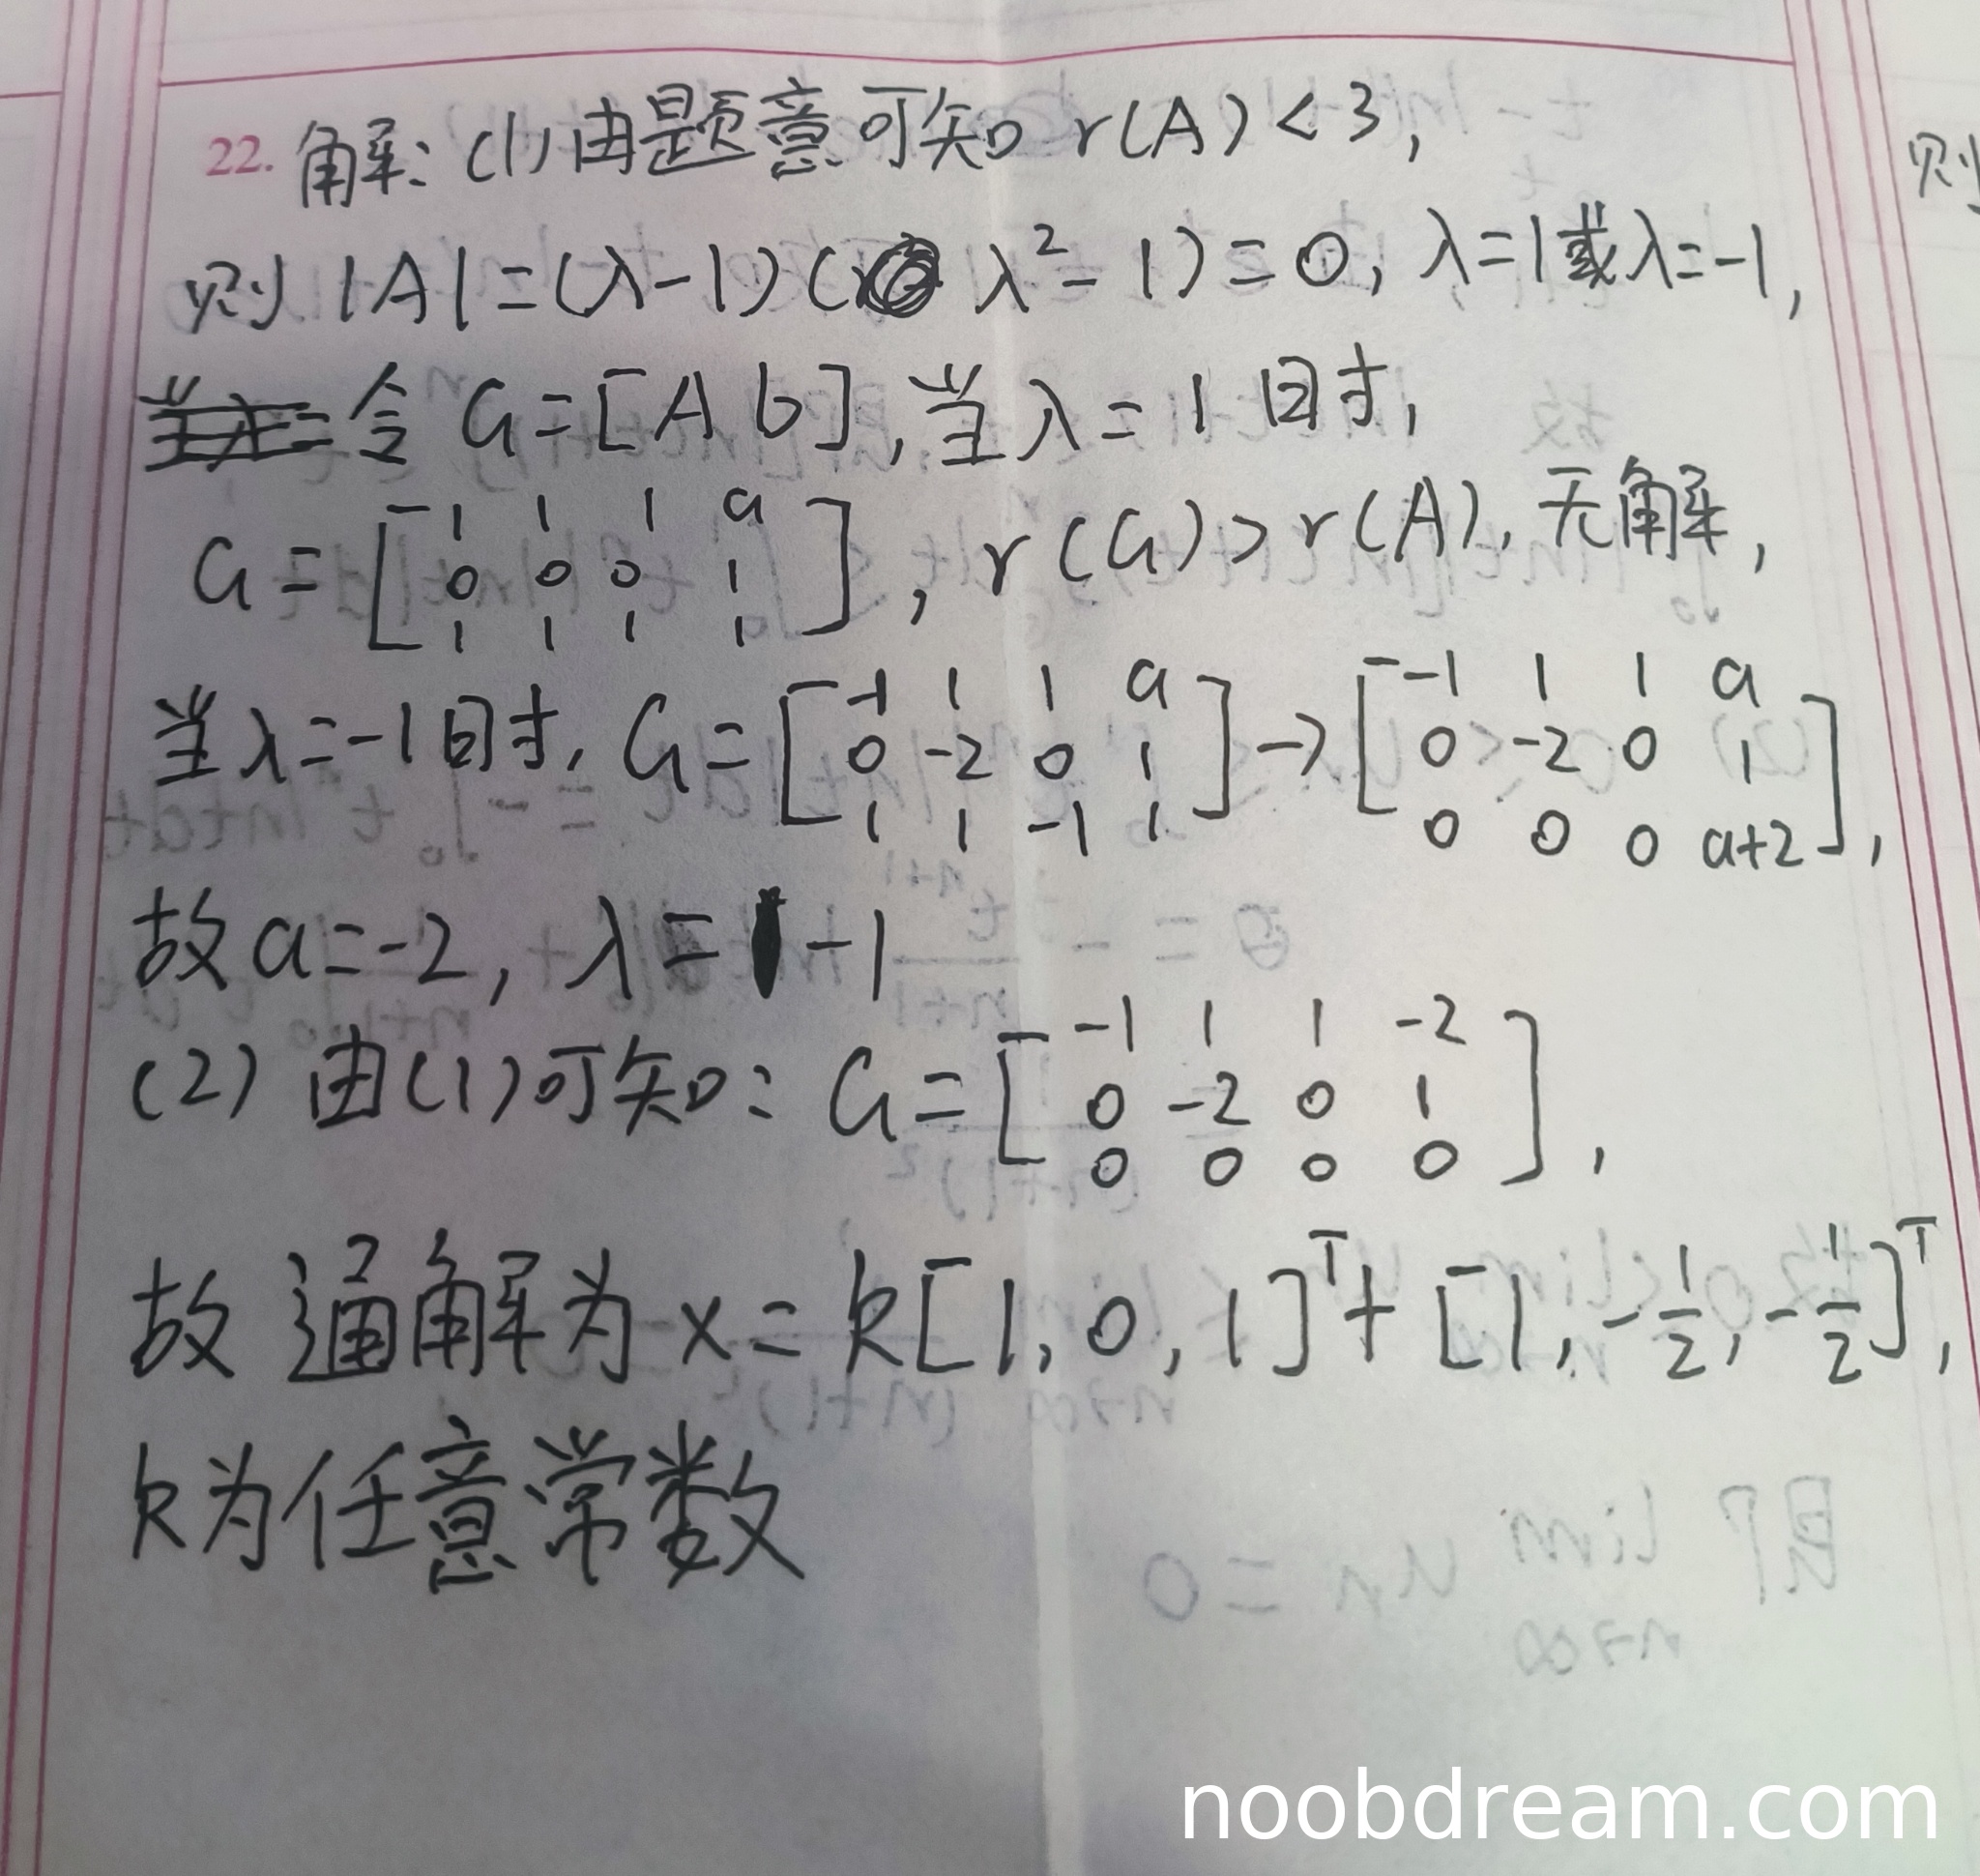 22. 解: (1) 由题意可知 r(A) < 3,
则 |A| = (λ-1)(λ²-1) = 0, λ=1或λ=-1,
令 G = [A b], 当λ=1时,
G = [1 1 1 a; 0 0 0 1; 1 1 1 1], r(G) > r(A), 无解,
当λ=-1时, G = [-1 1 1 a; 0 -2 0 1; 1 1 -1 1] → [-1 1 1 a; 0 -2 0 1; 0 0 0 a+2],
故 a=-2, λ=-1
(2) 由(1)可知: G = [-1 1 1 -2; 0 -2 0 1; 0 0 0 0],
故 通解为 x = k[1, 0, 1]ᵀ + [1, -1/2, -1/2]ᵀ,
k为任意常数
则
noobdream.com